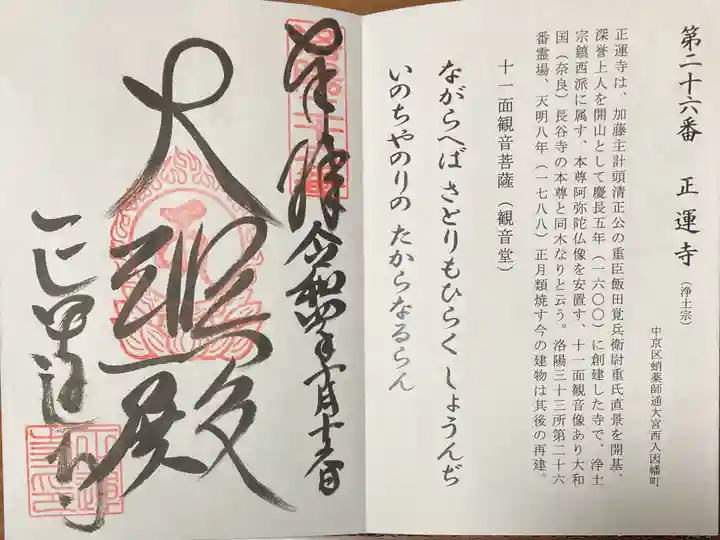 第二十六番 正運寺(浄土宗)
中京区蛸薬師通大宮西入因幡町
正運寺は、加藤主計頭清正公の重臣飯田覚兵衛尉重氏直景を開基、
深誉上人を開山として慶長五年(一六〇〇)に創建した寺で、浄土
宗鎮西派に属す、本尊阿弥陀仏像を安置す、十一面観音像あり大和
国(奈良)長谷寺の本尊と同木なりと云う。洛陽三十三所第二十六
番霊場、天明八年(一七八八)正月類焼す今の建物は其後の再建。
十一面観音菩薩(観音堂)
ながらへば さとりもひらく しょうんぢ
いのちやのりの たからなるらん
奉拝 令和四年
大悲殿
正運寺